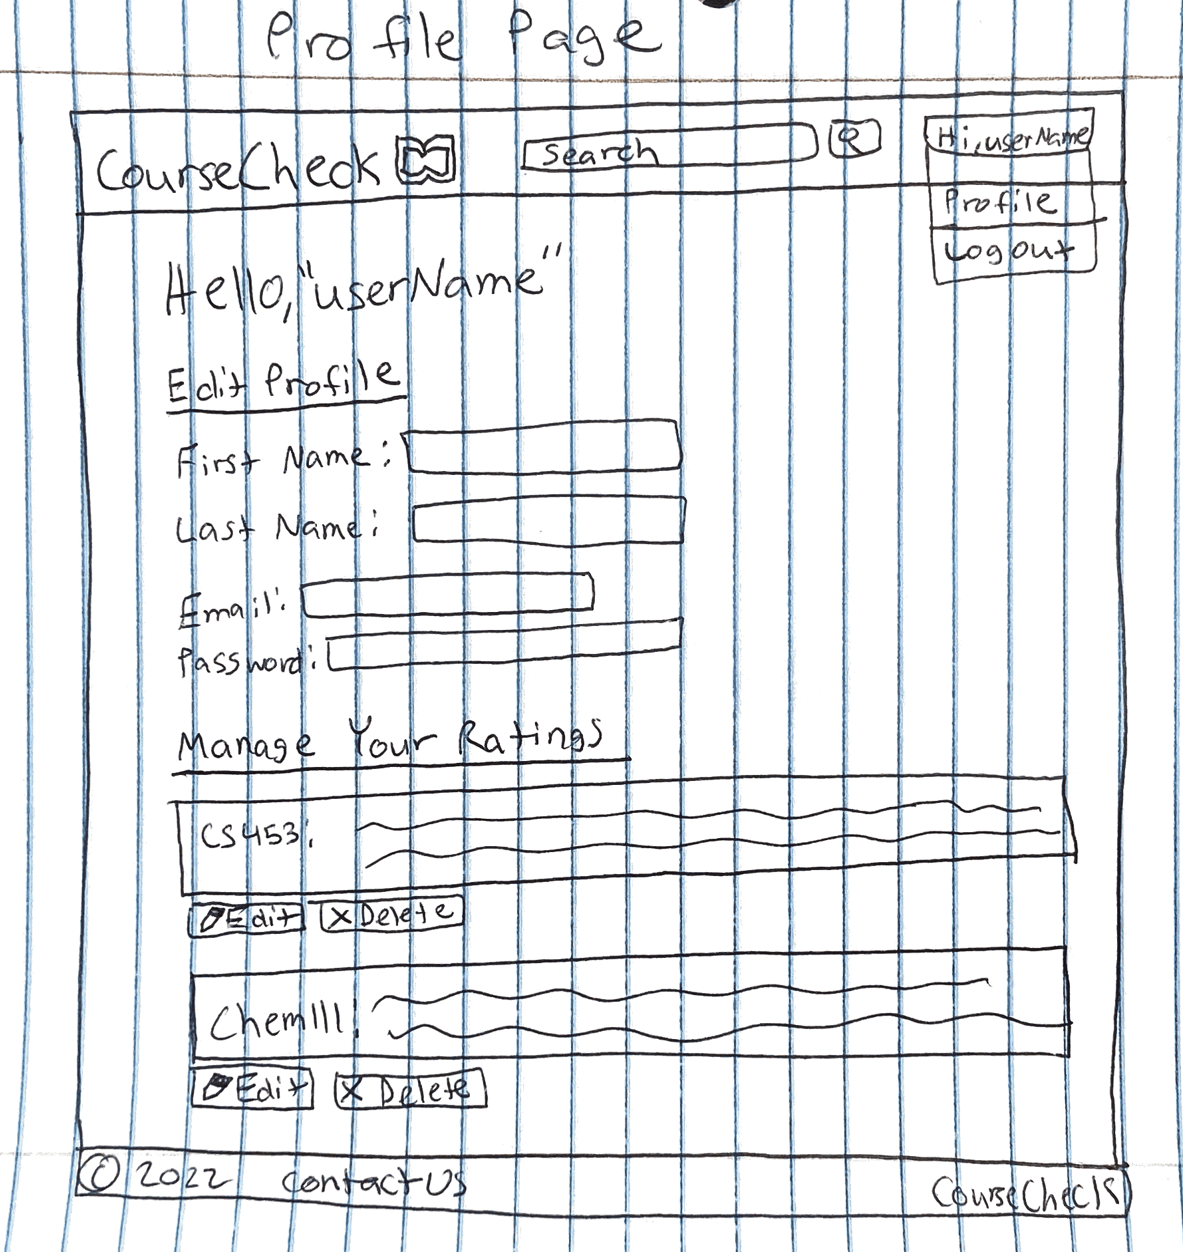 Profile Page
CourseCheck Search Hi, userName
Profile
Logout
Hello, "userName"
Edit Profile
First Name:
Last Name:
Email:
Password:
Manage Your Ratings
CS453:
Edit X Delete
Chem111:
Edit X Delete
© 2022 Contact Us CourseCheck